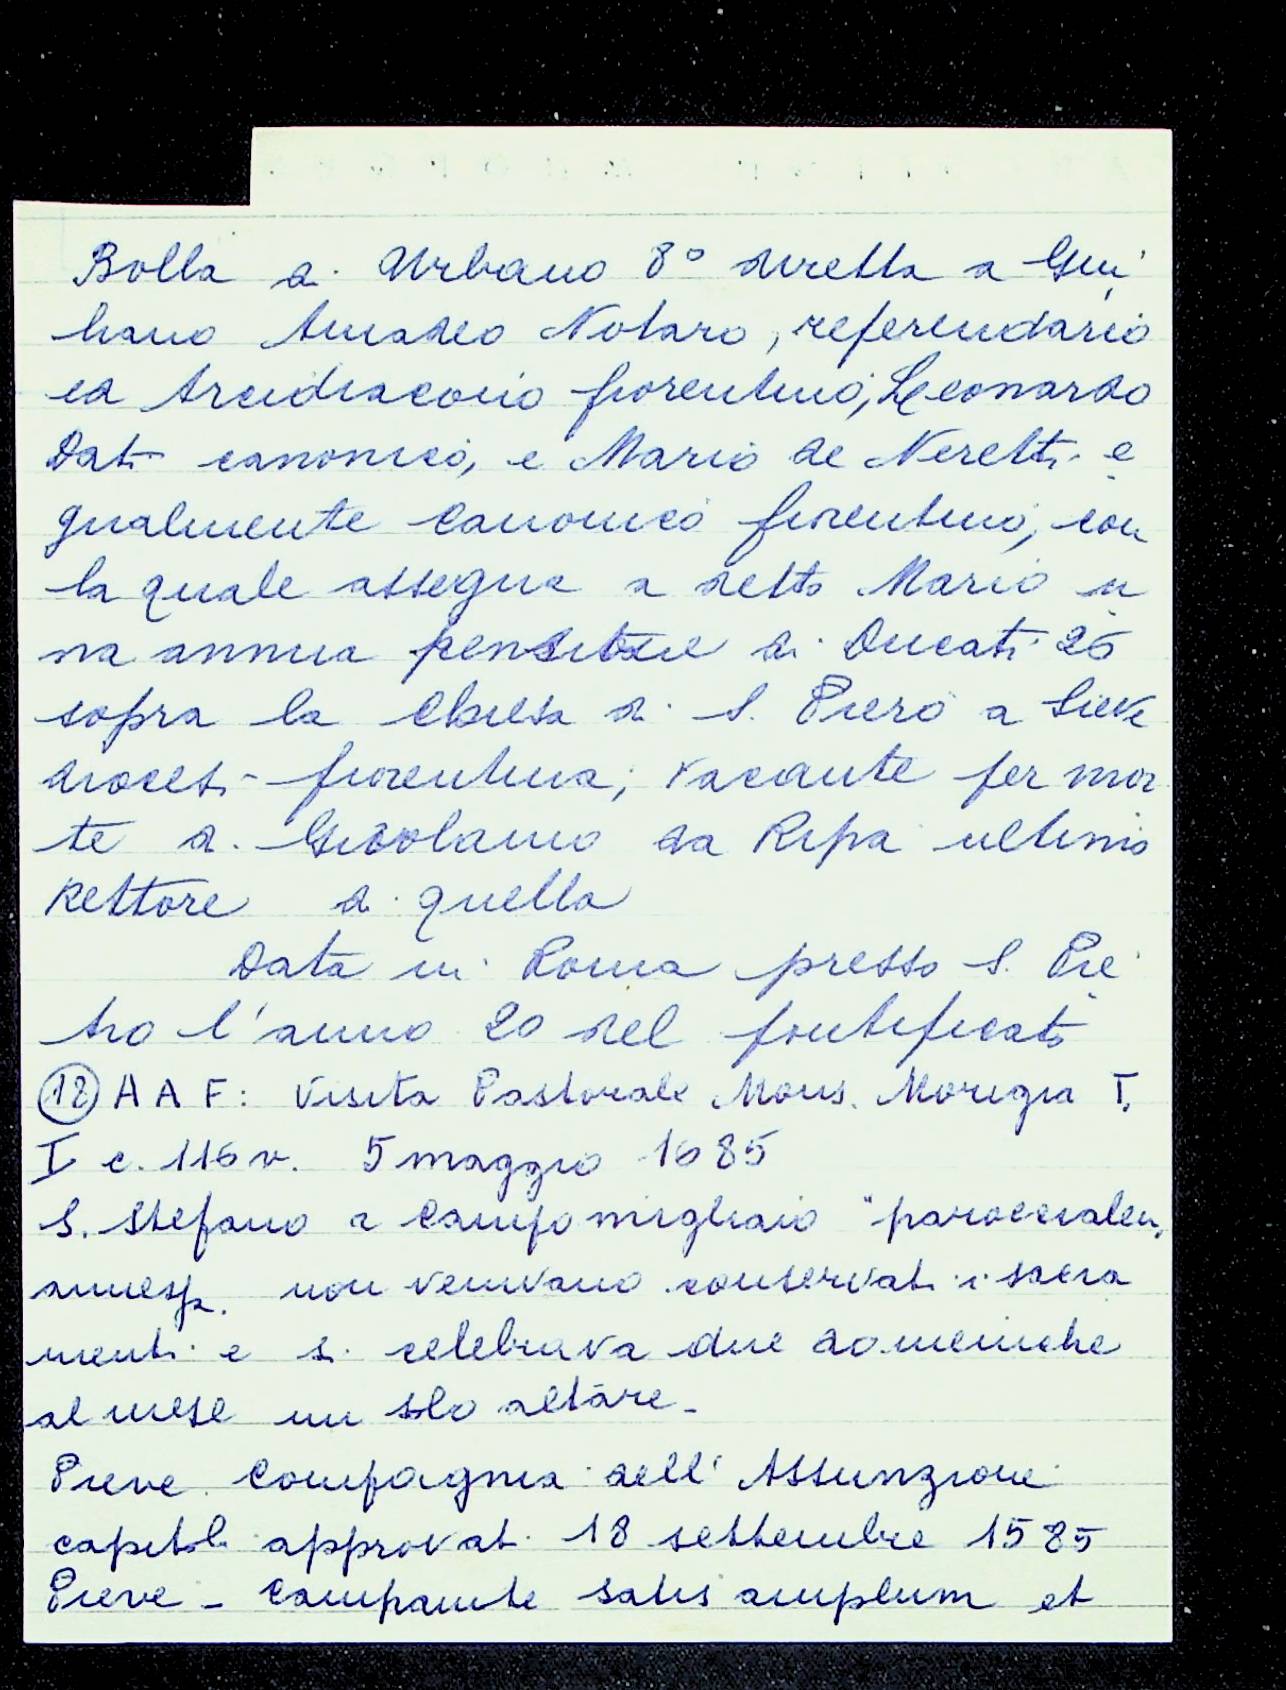 Bolla di Urbano 8° diretta a Giu
liano Amadeo Notaro, referendario
ed Arcidiacono fiorentino, Leonardo
Dati canonico, e Mario de Neretti e
gualmente canonico fiorentino, con
la quale assegna a detto Mario u
na annua pensione di Ducati 26
sopra la chiesa di S. Piero a Sieve
diocesi fiorentina, vacante per mor
te di Girolamo da Ripa ultimo
Rettore di quella
Data in Roma presso S. Pie
tro l'anno 20 del pontificato
(12) A A F: Visita Pastorale Mons. Morigia T.
I c. 116 v. 5 maggio 1685
S. Stefano a Campomigliaio "parocchialem
annesp. non venivano conservati i sacra
menti e si celebrava due domeniche
al mese un solo altare -
Pieve Compagnia dell' Assunzione
capitoli approvati 18 settembre 1585
Pieve - Campanile satis amplum et